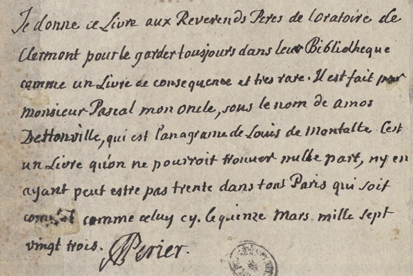 Je donne ce Livre aux Reverends Peres de l'oratoire de
Clermont pour le garder tousjours dans leur Bibliotheque
comme un Livre de consequence et tres rare. Il est fait par
monsieur Pascal mon oncle, sous le nom de amos
Dettonville, qui est l'anagrame de Louis de Montalte. C'est
un Livre qu'on ne pourroit trouver nulle part, n'y en
ayant peut estre pas trente dans tout Paris qui soit
comme celuy cy. le quinze Mars. mille sept
vingt trois. Perier.